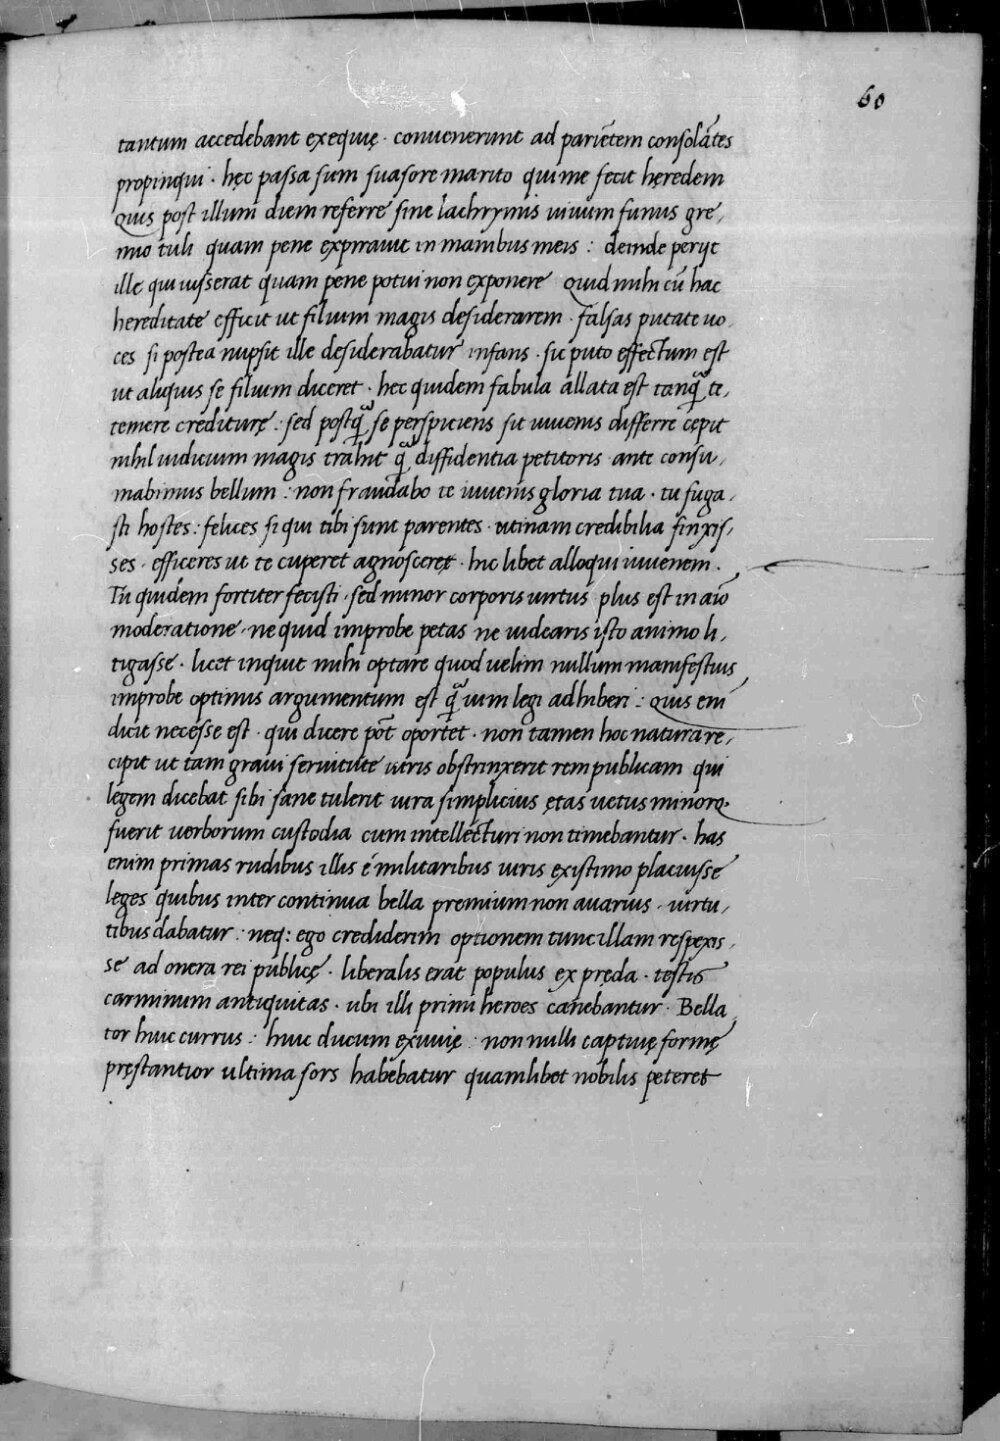 60
tantum accedebant exequię · convenerunt ad pariẽtem consolãtes
propinqui · hęc passa sum suasore marito qui me fecit hęredem
Quis post illum diem referre sine lachrymis vivum funus gre,
mio tuli quam pene expiravit in manibus meis : deinde perijt
ille qui iusserat quam pene potui non exponere Quid mihi cũ hac
hereditate efficit ut filium magis desiderarem · falsas putate uo
ces si postea nupsit ille desiderabatur infans · sic puto effectum est
ut aliquis se filium diceret · hec quidem fabula allata est tanq̃ te,
temere crediturę : sed postq̃ se perspiciens sit iuvenis differre cepit
nihil iudicium magis trahit q̃ diffidentia petitoris ante consu,
mabimus bellum : non fraudabo te iuvenis gloria tua · tu fuga,
sti hostes : felices si qui tibi sunt parentes · utinam credibilia finxis,
ses · efficeres ut te cuperet agnoscerę · hic libet alloqui iuvenem .
Tu quidem fortiter fecisti · sed minor corporis uirtus plus est in aĩo
moderatione · ne quid improbe petas ne uidearis isto animo li,
tigasse · licet inquit mihi optare quod uelim nullum manifestius
improbe optimus argumentum est q̃ uim legi adhiberi : quis eñi
dicit necesse est · qui dicere põt oportet · non tamen hoc natura re,
cipit ut tam gravi servitute iuris obstrinxerit rem publicam qui
legem dicebat sibi sane tulerit iura simplicius ętas uetus minorq·
fuerit uerborum custodia cum intellecturi non timebantur · has
enim primas rudibus illis é militaribus uiris existimo placuisse
leges quibus inter continua bella premium non auarius · uirtu,
tibus dabatur : neq: ego crediderim optionem tunc illam respexis,
se ad onera rei publicę · liberalis erat populus ex pręda · testis
carminum antiquitas · ubi illi primi heroes canebantur · Bella,
tor huic currus : huic ducum exuvię : non nulli captivę formę
pręstantior ultima sors habebatur quamlibet nobilis peteret